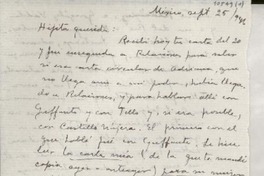 México, sept 25/946
Hijita querida: Recibí hoy tu carta del 20
y fui enseguida a Relaciones para saber
si esa carta circular de Adriana, que
no llega aún a mi poder, había llega
do a Relaciones, y para hablar allí con
y con Tello y, si era posible,
con Castillo Nájera. El primero con el
que hablé fué con
la carta mía (de la que te mandé
copia ayer = anteayer) para su